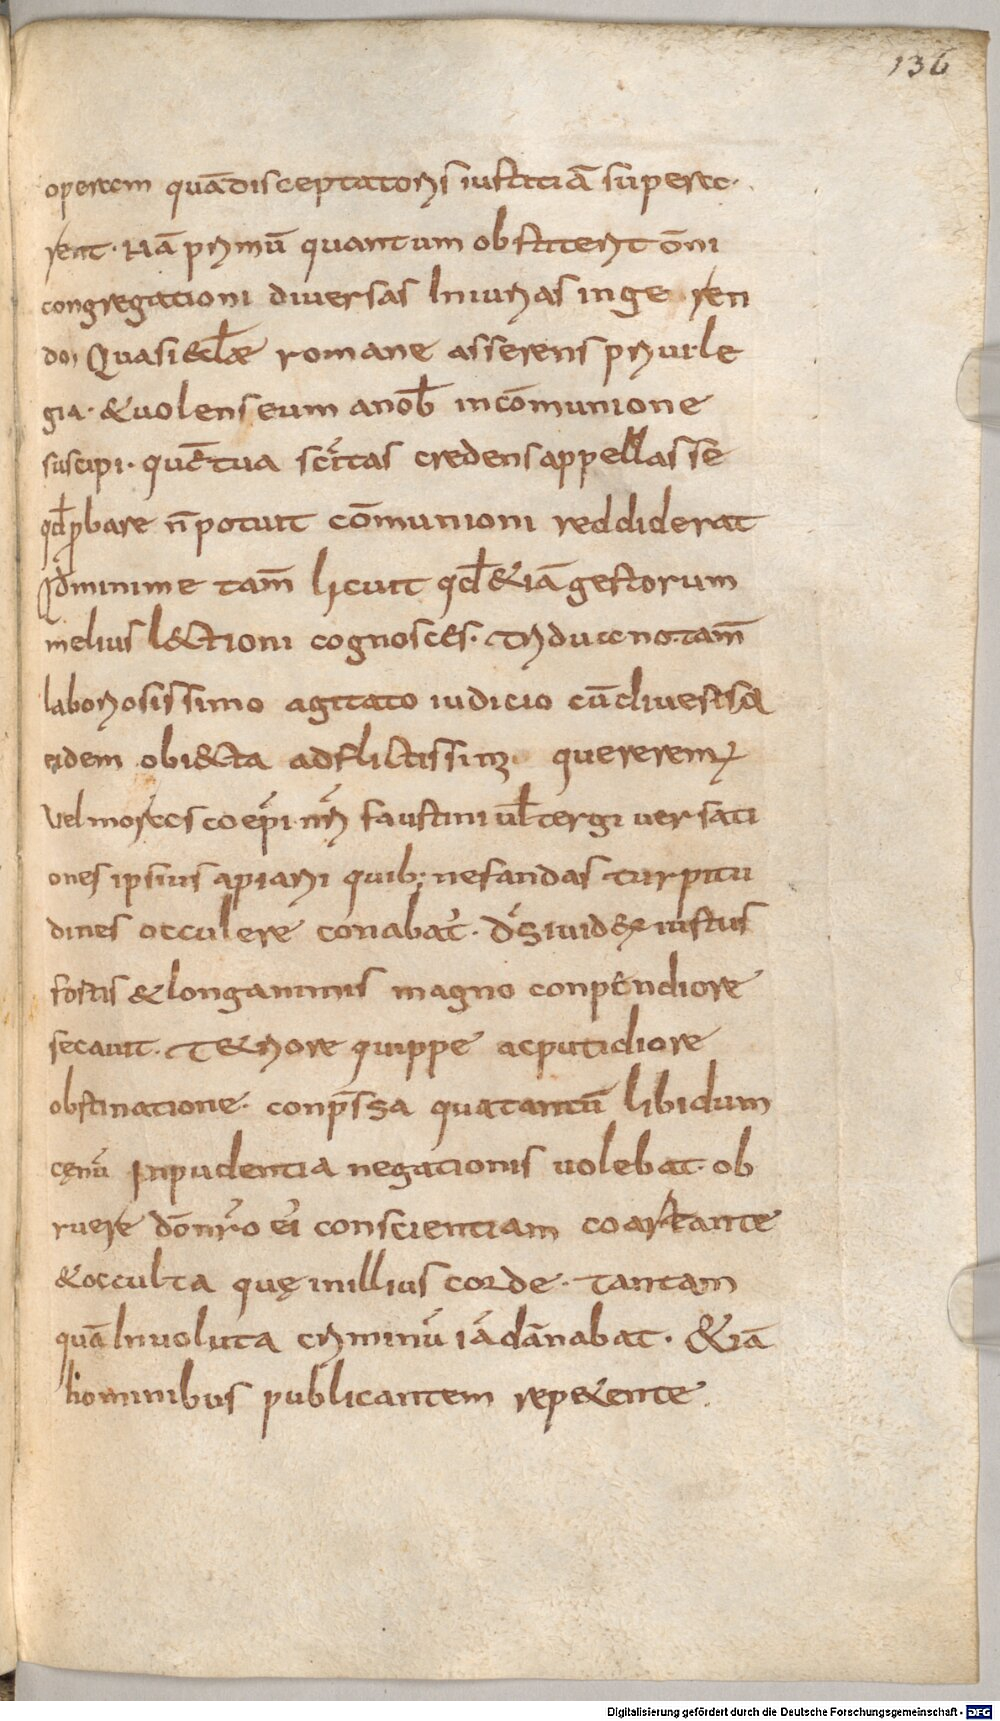 136
operem quā disceptatoris iustitiā superec·
rent· Nā primū quantum obstiterit om̄i
congregationi diuersas Iniurias inge ren
do, Quasi & ecl̄æ romane asserens priuile
gia· & uolens eum a nob̄ in cōmunione
suscipi· quē tua sc̄itas credens appellasse
qd̄ probare n̄ potuit cōmunioni reddiderat
Qd̄ minime tam̄ licuit qd̄ & iā gestorum
melius l&tioni cognosces· Triduano tam̄
laboriosissimo agitato iudicio cū diuersa
eidem obiecta adflictissimi quererem
Vel mores coep̄i nr̄i faustini ul̄ tergi uersati
ones ipsius apiarii quib; nefandas turpitu
dines occulere conabat̄· d̄s iudex iustus
fortis & longanimis magno conpendiore
secauit· T&riore quippe ac putidiore
obstinatione· conpressa qua tantū libidum
cęnū Inpudentia negationis uolebat ob
ruere dō nr̄o ei conscientiam coartante
& occulta quę in illius corde· tantam
quā Inuoluta criminū iā dānabat· & iā
hominibus publicantem repexente·
Digitalisierung gefördert durch die Deutsche Forschungsgemeinschaft - DFG